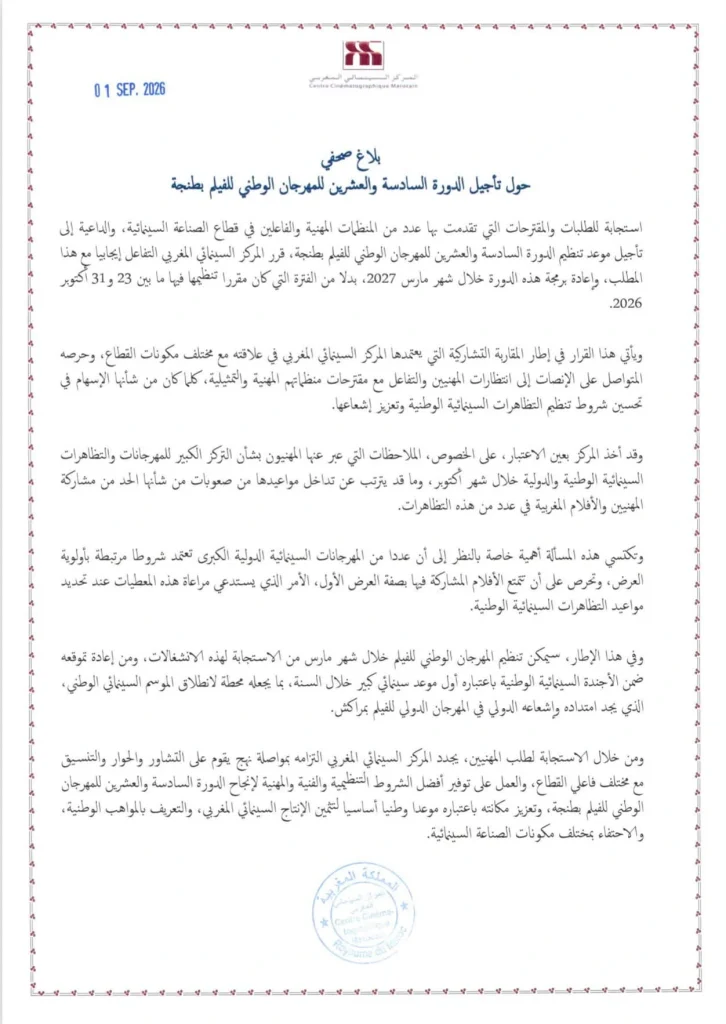 المركز السينمائي المغربي
Centre Cinématographique Marocain
01 SEP. 2026
بلاغ صحفي
حول تأجيل الدورة السادسة والعشرين للمهرجان الوطني للفيلم بطنجة
استجابة للطلبات والمقترحات التي تقدمت بها عدد من المنظمات المهنية والفاعلين في قطاع الصناعة السينمائية، والداعية إلى
تأجيل موعد تنظيم الدورة السادسة والعشرين للمهرجان الوطني للفيلم بطنجة، قرر المركز السينمائي المغربي التفاعل إيجابيا مع هذا
المطلب، وإعادة برمجة هذه الدورة خلال شهر مارس 2027، بدلا من الفترة التي كان مقررا تنظيمها فيها ما بين 23 و 31 أكتوبر
2026.
ويأتي هذا القرار في إطار المقاربة التشاركية التي يعتمدها المركز السينمائي المغربي في علاقته مع مختلف مكونات القطاع، وحرصه
المتواصل على الإنصات إلى انتظارات المهنيين والتفاعل مع مقترحات منظماتهم المهنية والتمثيلية، كلما كان من شأنها الإسهام في
تحسين شروط تنظيم التظاهرات السينمائية الوطنية وتعزيز إشعاعها.
وقد أخذ المركز بعين الاعتبار، على الخصوص، الملاحظات التي عبر عنها المهنيون بشأن التركز الكبير للمهرجانات والتظاهرات
السينمائية الوطنية والدولية خلال شهر أكتوبر، وما قد يترتب عن تداخل مواعيدها من صعوبات من شأنها الحد من مشاركة
المهنيين والأفلام المغربية في عدد من هذه التظاهرات.
وتكتسي هذه المسألة أهمية خاصة بالنظر إلى أن عددا من المهرجانات السينمائية الدولية الكبرى تعتمد شروطا مرتبطة بأولوية
العرض، وتحرص على أن تتمتع الأفلام المشاركة فيها بصفة العرض الأول، الأمر الذي يستدعي مراعاة هذه المعطيات عند تحديد
مواعيد التظاهرات السينمائية الوطنية.
وفي هذا الإطار، سيمكن تنظيم المهرجان الوطني للفيلم خلال شهر مارس من الاستجابة لهذه الانشغالات، ومن إعادة تموقعه
ضمن الأجندة السينمائية الوطنية باعتباره أول موعد سينمائي كبير خلال السنة، بما يجعله محطة لانطلاق الموسم السينمائي الوطني،
الذي يجد امتداده وإشعاعه الدولي في المهرجان الدولي للفيلم بمراكش.
ومن خلال الاستجابة لطلب المهنيين، يجدد المركز السينمائي المغربي التزامه بمواصلة نهج يقوم على التشاور والحوار والتنسيق
مع مختلف فاعلي القطاع، والعمل على توفير أفضل الشروط التنظيمية والفنية والمهنية لإنجاح الدورة السادسة والعشرين للمهرجان
الوطني للفيلم بطنجة، وتعزيز مكانته باعتباره موعدا وطنيا أساسيا لتثمين الإنتاج السينمائي المغربي، والتعريف بالمواهب الوطنية،
والاحتفاء بمختلف مكونات الصناعة السينمائية.
المملكة المغربية
Centre Cinéma-
Royaume du Maroc